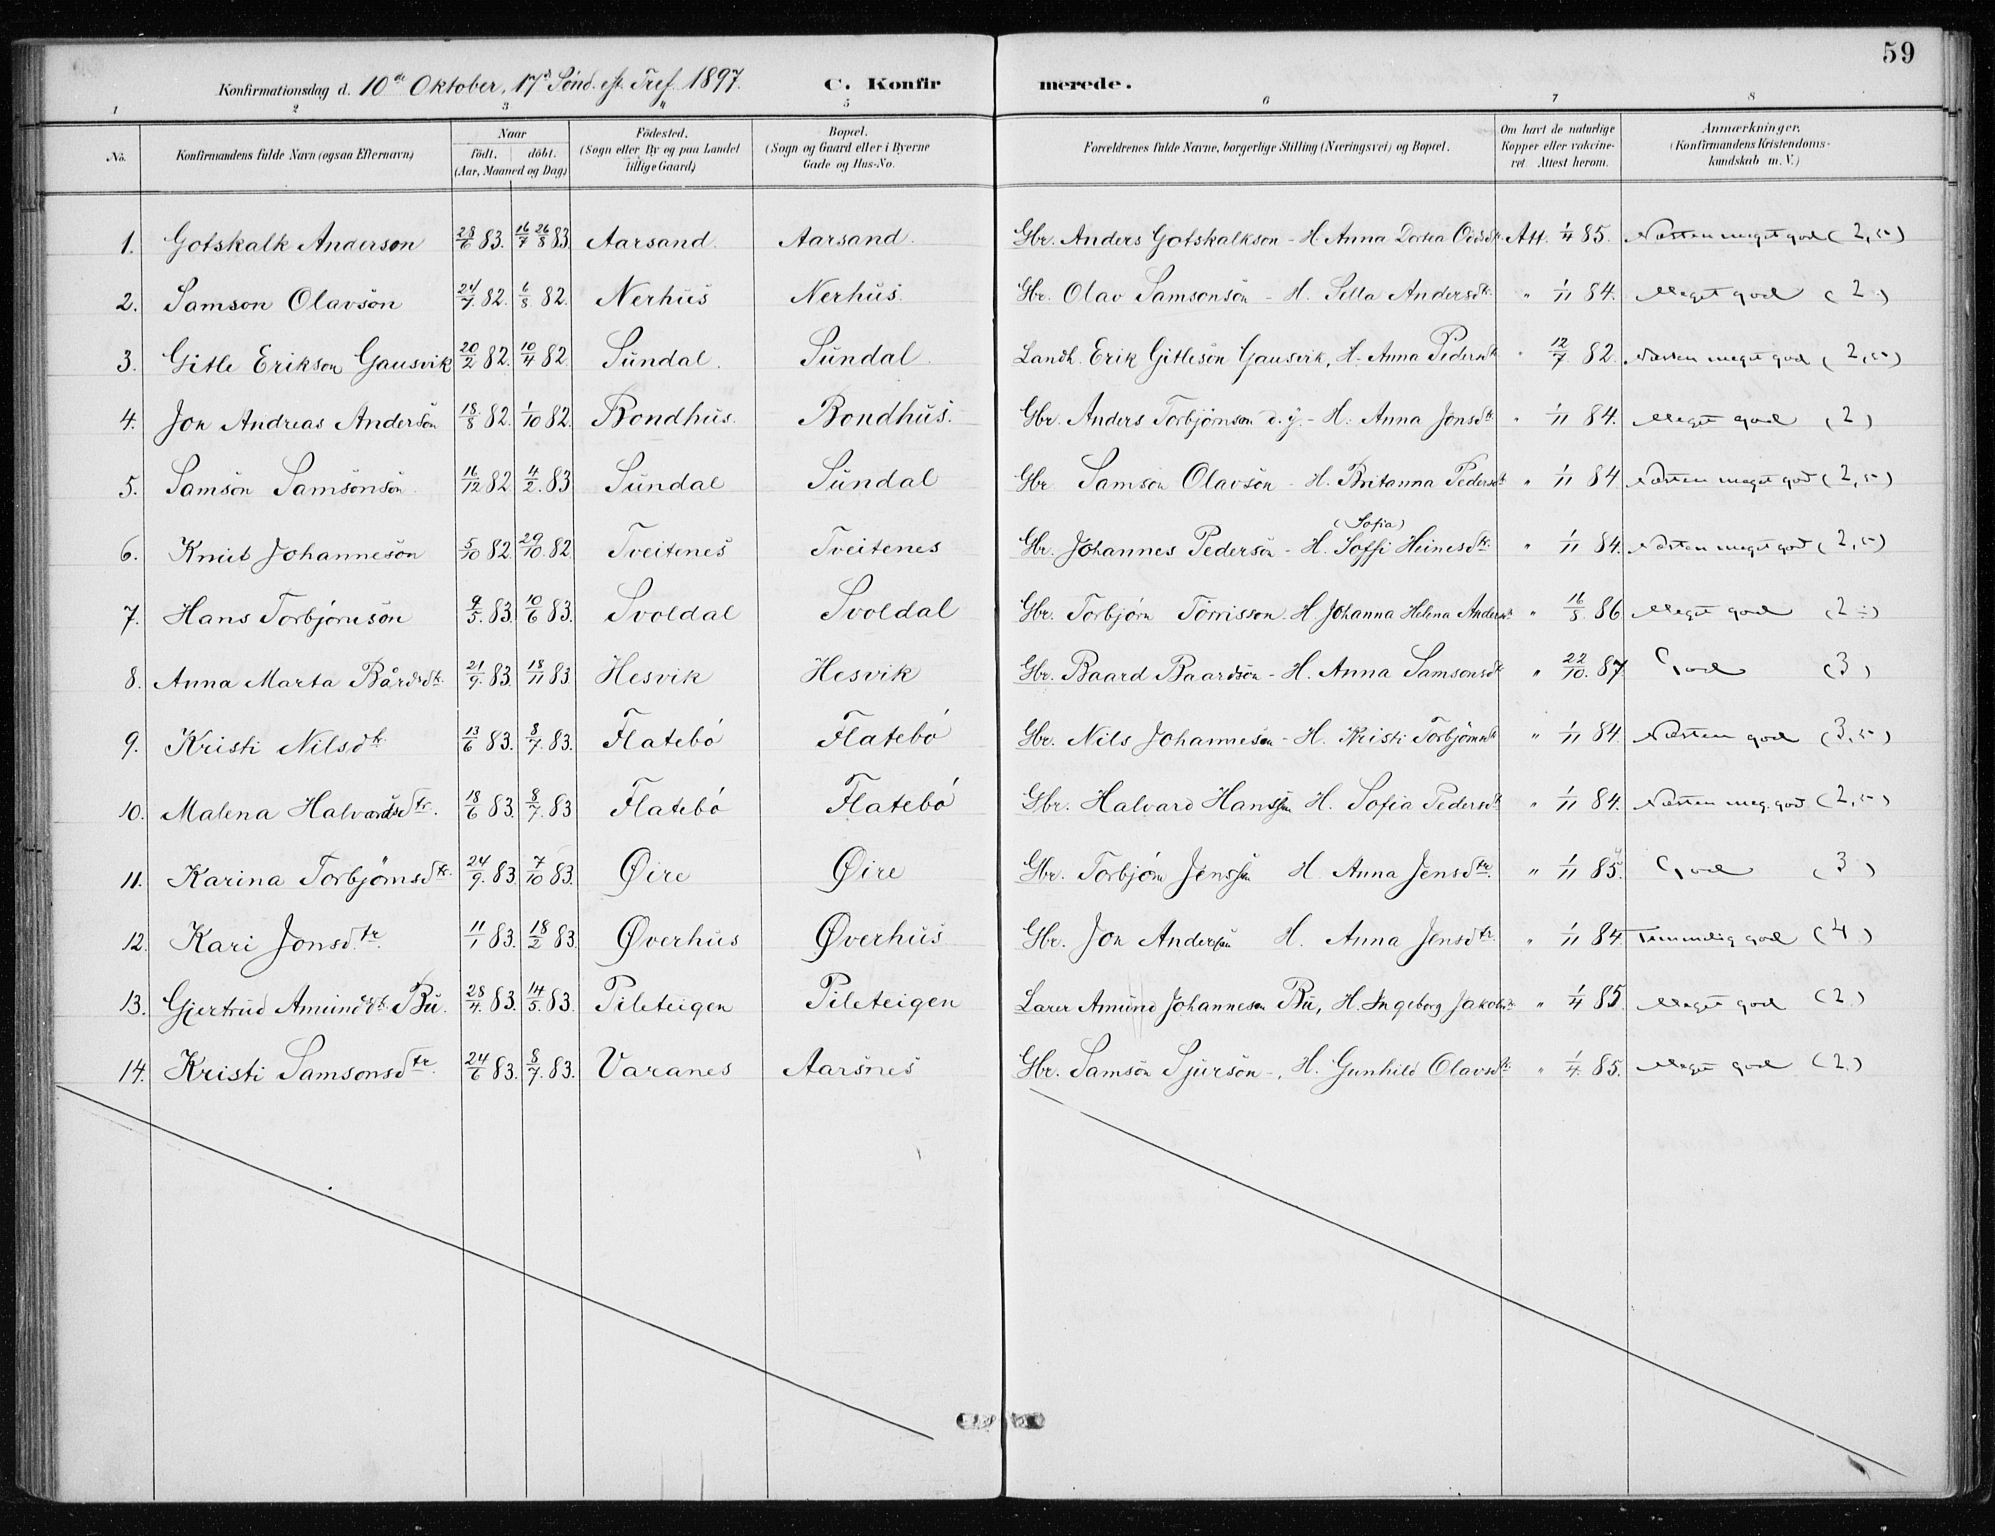 59
Konfirmationsdag d. 10de Oktober, 17d Sönd. eft. Tref. 1897. C. Konfirmerede.
1 2 3 4 5 6 7 8
No. Konfirmandens fulde Navn (ogsaa Efternavn) Naar födt. döbt. (Aar, Maaned og Dag) Födested. (Sogn eller By og paa Landet tillige Gaard) Bopæl. (Sogn og Gaard eller i Byerne Gade og Hus-No. Forældrenes fulde Navne, borgerlige Stilling (Næringsvei) og Bopæl. Om havt de naturlige Kopper eller vakcineret Attest herom. Anmærkninger. (Konfirmandens Kristendomskundskab m. V.)
1. Gotskalk Anderson 28/6 83. 16/7 26/8 83 Aarsand. Aarsand. Gbr. Anders Gotskalkson - H. Anna Dortea Oddsdtr Att. 1/4 85. Næsten meget god (2,50)
2. Samson Olavsön 24/7 82. 6/8 82. Nerhus Nerhus. Gbr. Olav Samsonsön - H. Silla Andersdtr. " 1/11 84. Meget god (2.)
3. Gitle Erikson Gausvik 20/2 82. 10/4 82 Sundal. Sundal. Landh. Erik Gitlesön Gausvik, H. Anna Pedersdtr " 12/7 82. Næsten meget god (2,50)
4. Jon Andreas Andersön 18/8 82. 1/10 82. Bondhus. Bondhus. Gbr. Anders Torbjörnson d.y. - H. Anna Jonsdtr " 1/11 84. Meget god (2)
5. Samson Samsonsön 16/12 82 4/2 83 Sundal Sundal Gbr. Samson Olavsön - H. Britanna Pedersdtr " 1/11 84 Næsten meget god (2,50)
6. Knut Johannesön 5/10 82 29/10 82 Tveitenes Tveitenes Gbr. Johannes Pedersön - H. Soffi (Sofia) Heinesdtr. " 1/11 84. Næsten meget god (2,50)
7. Hans Torbjörnsön 9/5 83. 10/6 83. Svoldal Svoldal Gbr. Torbjörn Törrisson. H Johanna Helena Andersdtr " 16/8 86 Meget god (2÷)
8. Anna Marta Bårdsdtr. 21/9 83 18/11 83 Hesvik Hesvik Gbr. Baard Baardsön - H. Anna Samsonsdtr " 22/10 87 God (3)
9. Kristi Nilsdtr. 13/6 83. 8/7 83. Flatebö Flatebö Gbr. Nils Johannesön - H. Kristi Torbjörnsdtr " 1/11 84. Næsten god (3,50)
10. Malena Halvardsdtr. 18/6 83. 8/7 83 Flatebö Flatebö Gbr. Halvard Hanssön H. Sofia Pedersdtr " 1/11 84. Næsten meg. god (2,50)
11. Karina Torbjörnsdtr. 24/9 83 7/10 83. Øire Øire Gbr. Torbjörn Jenssön H. Anna Jensdtr. " 1/11 85. God (3)
12. Kari Jonsdtr. 11/1 83. 18/2 83. Øverhus Øverhus Gbr. Jon Andersön H. Anna Jensdtr " 1/11 84. Temmelig god (4)
13. Gjertrud Amundsdtr. Bu. 28/4 83. 14/5 83. Pileteigen Pileteigen Lærer Amund Johanneson Bu, H. Ingeborg Jakobsdtr " 1/4 85 Meget god (2.)
14. Kristi Samsonsdtr. 24/6 83. 8/7 83. Varanes Aarsnes Gbr. Samson Sjursön -, H. Gunhild Olavsdtr. " 1/4 85. Meget god (2.)